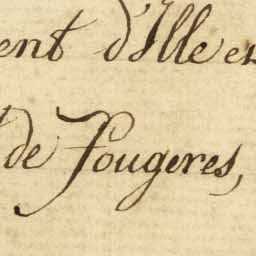 ent d'Ille et
de Fougeres,